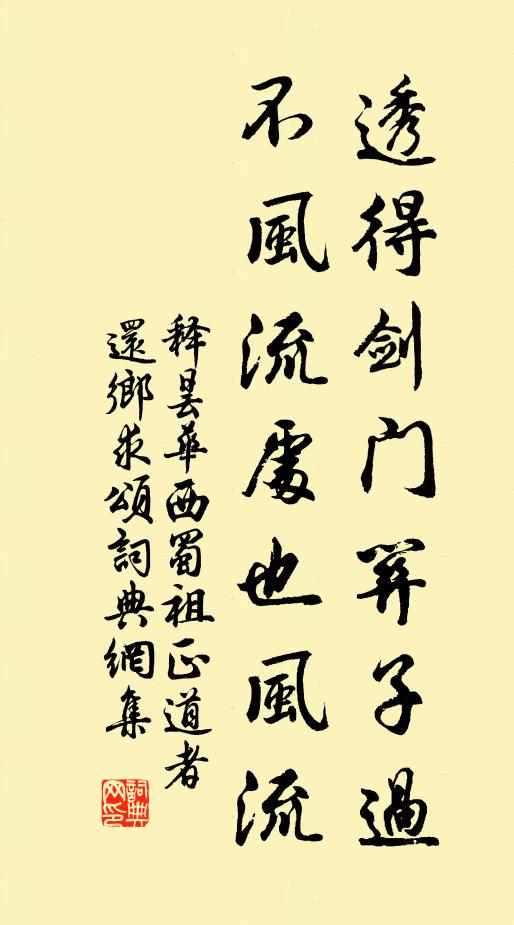 透得剑门关子過
不風流處也風流
释昙華西蜀祖正道者
還鄉求頌詞典網集
詞典网印